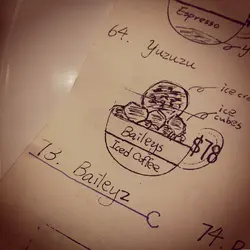 Espresso
64. Yuzuzu
ice
ice
cubes
Baileys
Iced Coffee
$78
73. Baileyz
C
74.